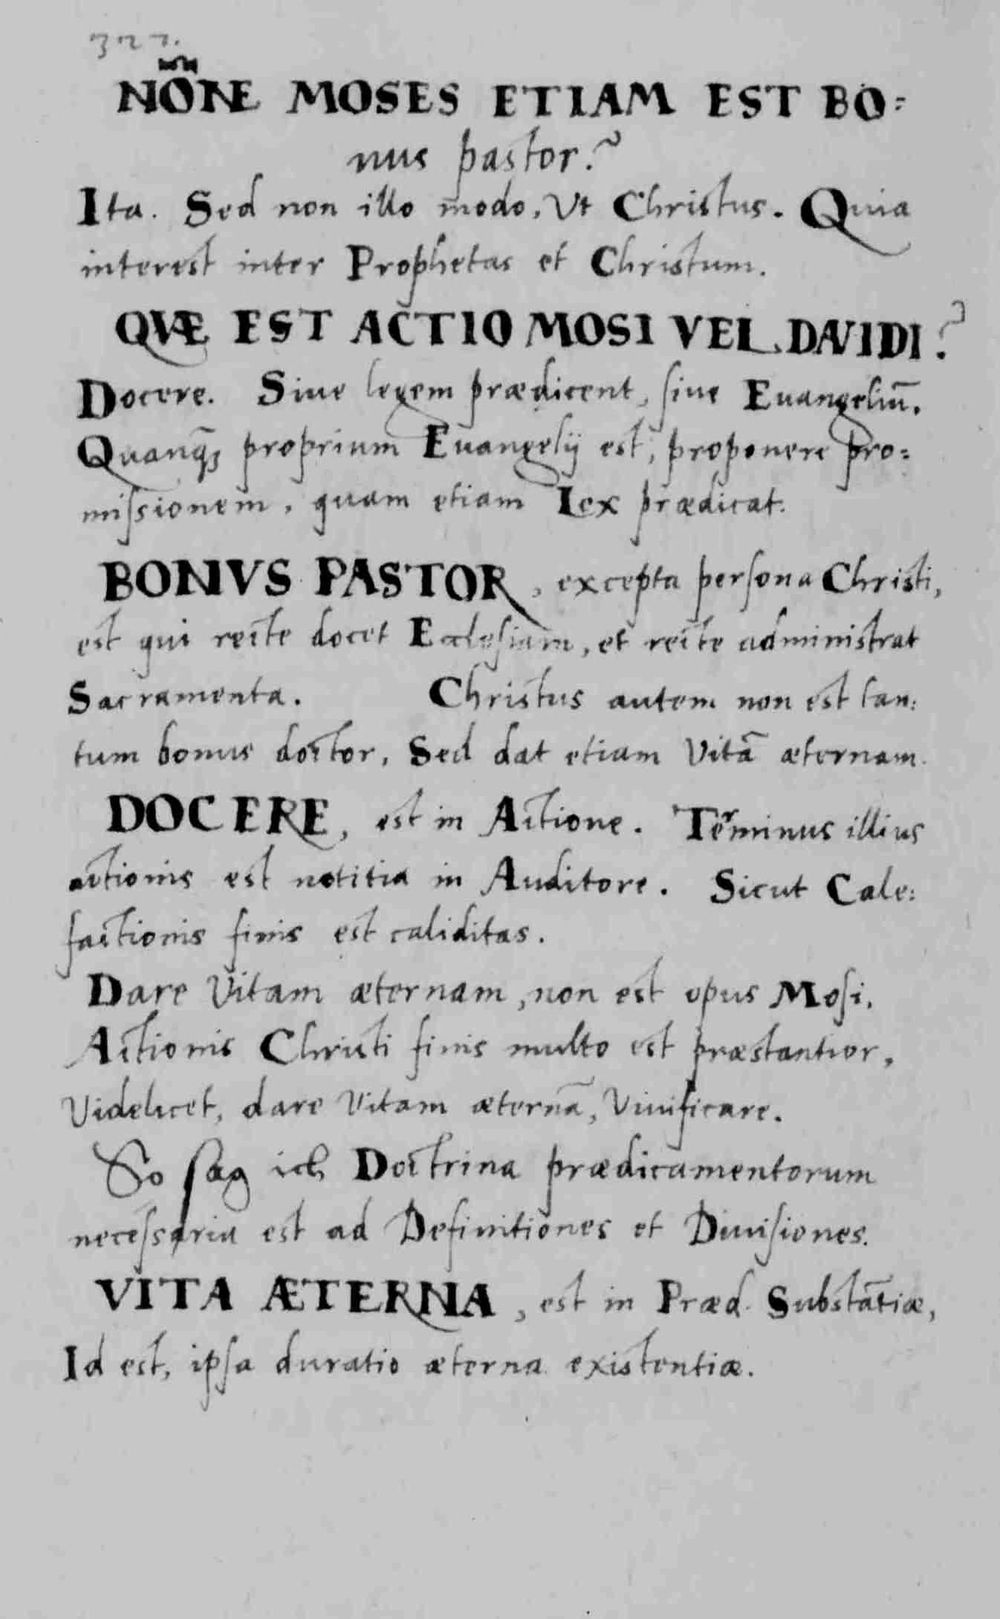 327.
NÕNE MOSES ETIAM EST BO=
nus pastor?
Ita. Sed non illo modo, Ut Christus. Quia
interest inter Prophetas et Christum.
QVÆ EST ACTIO MOSI VEL DAVIDI?
Docere. Siue legem prædicent, siue Euangeliū.
Quanq̃ȝ proprium Euangelij est, proponere pro=
missionem, quam etiam Lex prædicat.
BONVS PASTOR, excepta persona Christi,
est qui recte docet Ecclesiam, et recte administrat
Sacramenta. Christus autem non est tan:
tum bonus doctor, Sed dat etiam Vitā æternam.
DOCERE, est in Actione. Terminus illius
actionis est notitia in Auditore. Sicut Cale:
factionis finis est caliditas.
Dare Vitam æternam, non est opus Mosi.
Actionis Christi finis multo est præstantior,
Videlicet, dare Vitam æternā, Viuificare.
So sag ich Doctrina prædicamentorum
necessaria est ad Definitiones et Diuisiones.
VITA ÆTERNA, est in Præd. Substātiæ,
Id est, ipsa duratio æterna existentiæ.